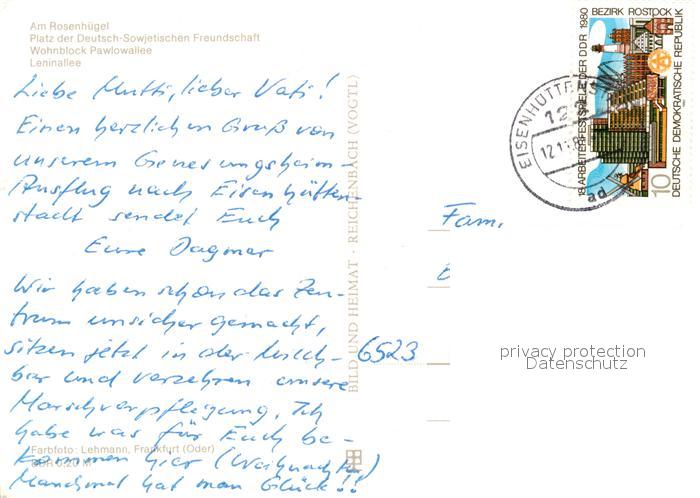 Am Rosenhügel
Platz der Deutsch-Sowjetischen Freundschaft
Wohnblock Pawlowallee
Leninallee
Liebe Mutti, lieber Vati!
Einen herzlichen Gruß von
unserem Genesungsheim-
Ausflug nach Eisenhütten-
stadt sendet Euch
Eure Dagmar
Wir haben schon das Zen-
trum unsicher gemacht,
sitzen jetzt in der Milch-
bar und verzehren unsere
Marschverpflegung. Ich
habe was für Euch be-
kommen hier (Weihnachten)
Manchmal hat man Glück!!
Farbfoto: Lehmann, Frankfurt (Oder)
DDR 0,20 M
BILD UND HEIMAT · REICHENBACH (VOGTL)
Fam.
6523
18. ARBEITERFESTSPIELE DER DDR 1980
BEZIRK ROSTOCK
DEUTSCHE DEMOKRATISCHE REPUBLIK
10
EISENHÜTTENS
ad
privacy protection
Datenschutz